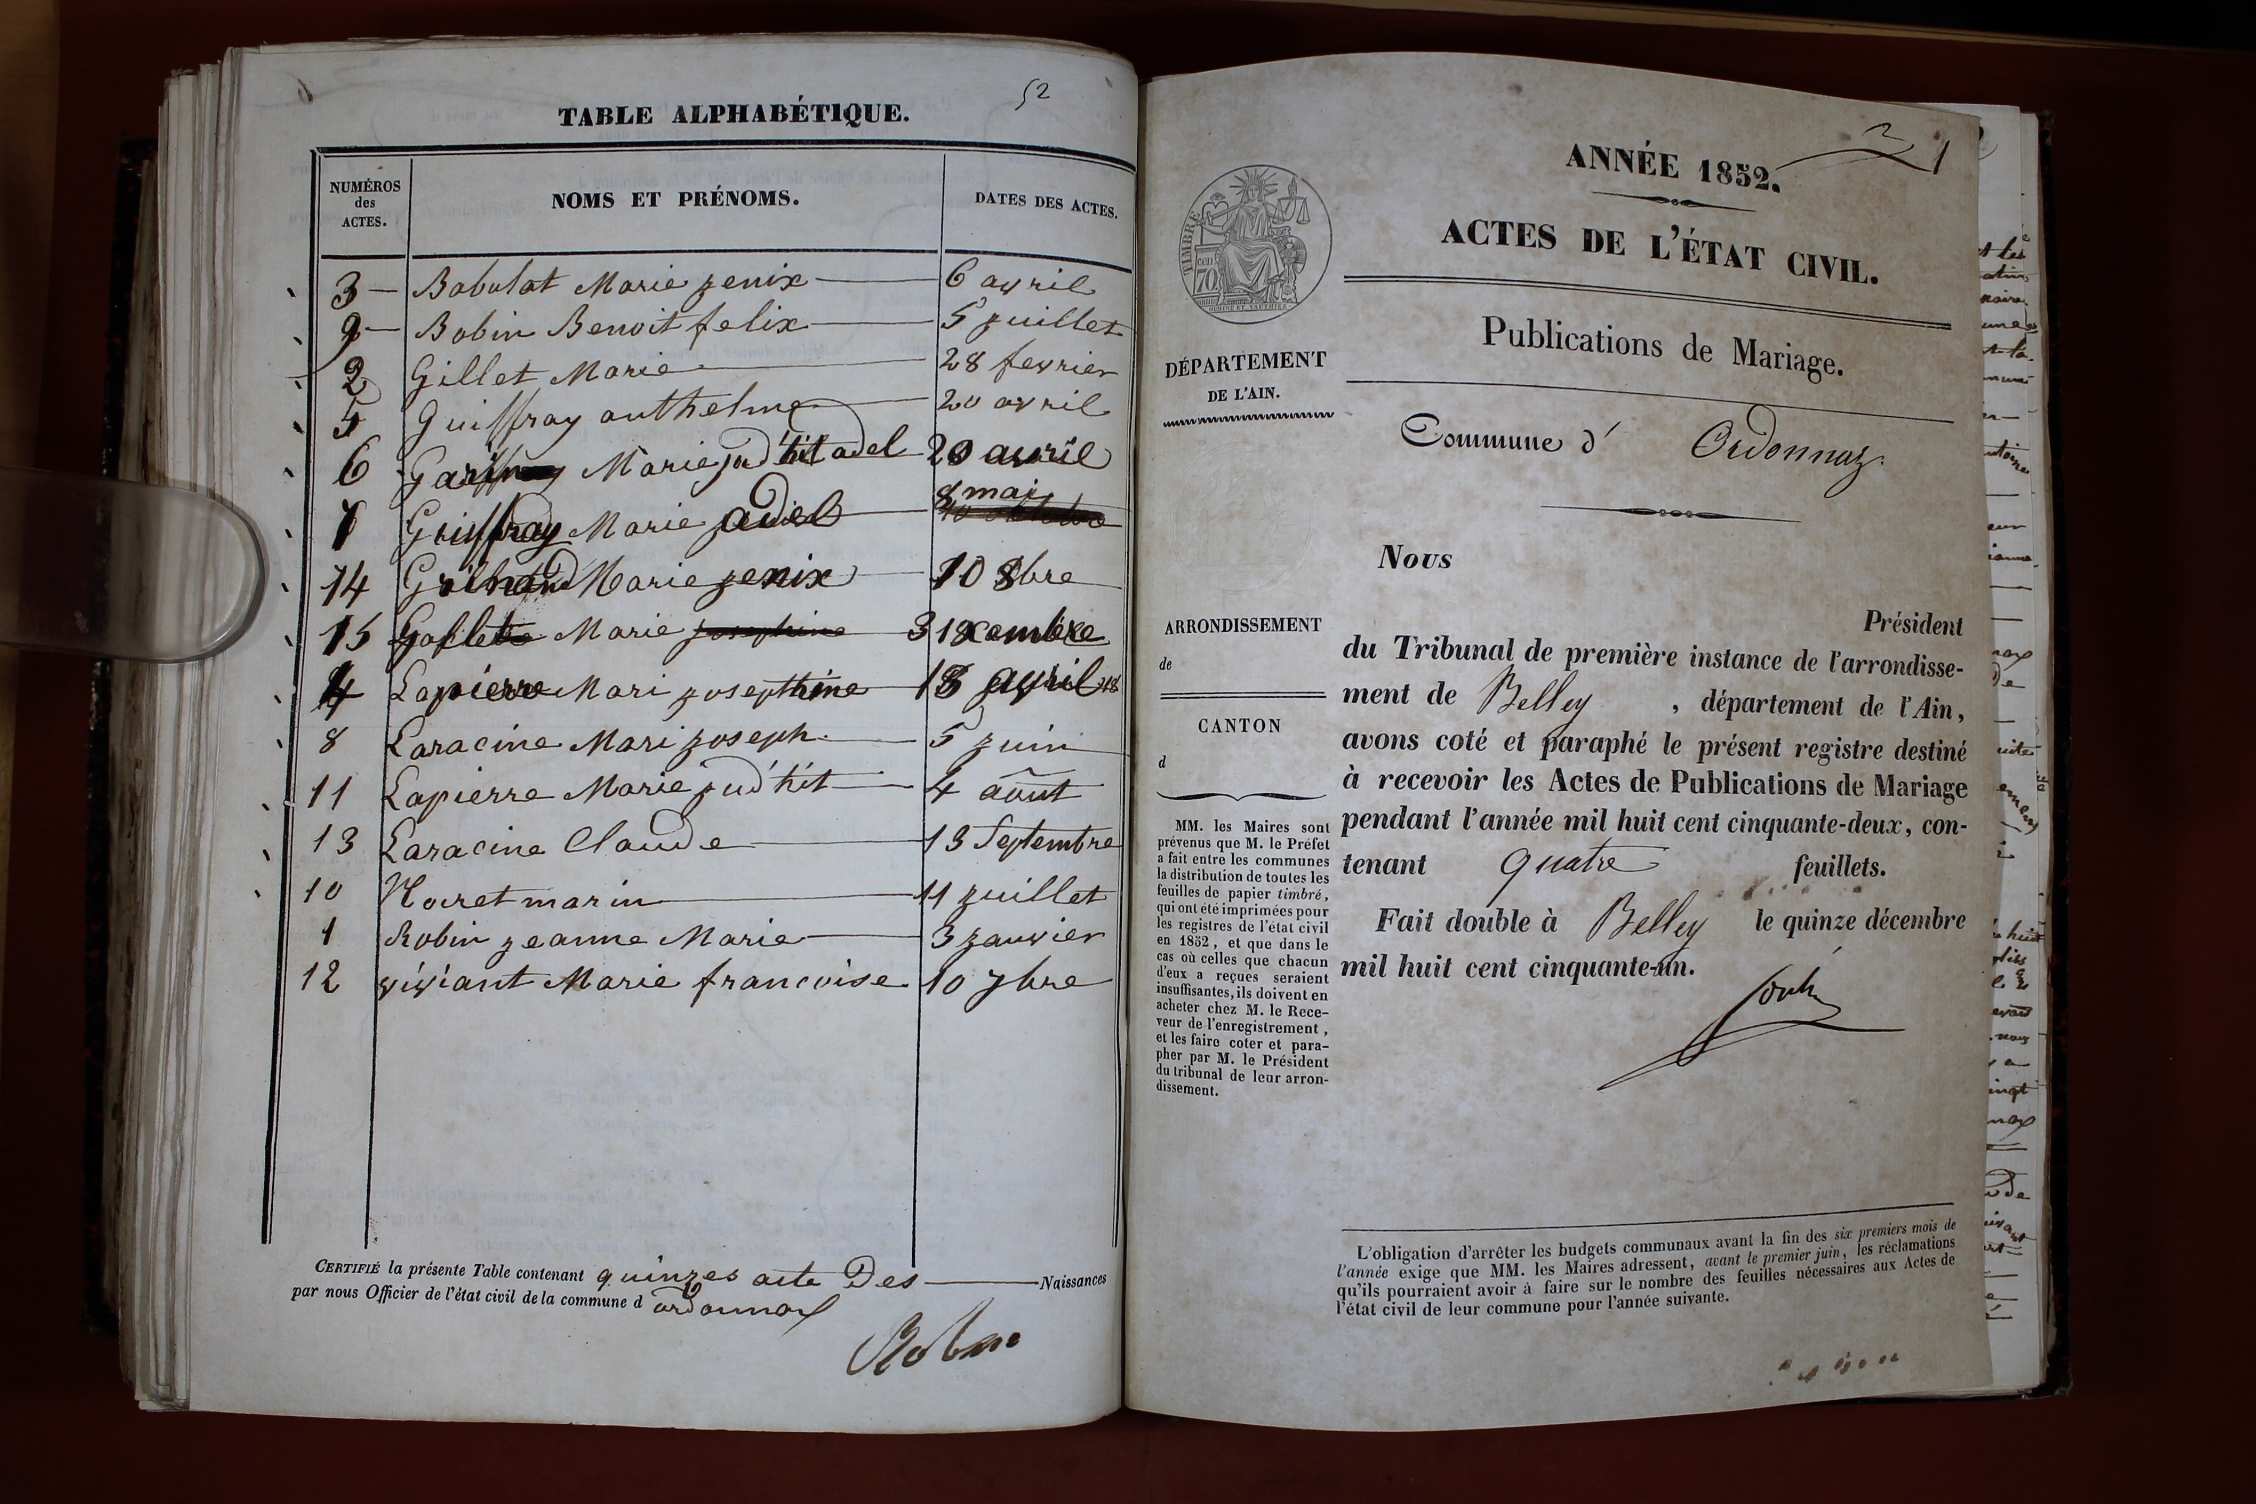 52
TABLE ALPHABÉTIQUE.
NUMÉROS
des
ACTES.
NOMS ET PRÉNOMS.
DATES DES ACTES.
3 Babolat Marie zenix 6 avril
9 Bobin Benoit felix 5 juillet
2 Gillet Marie 28 fevrier
5 Guiffray anthelme 20 avril
6 Marie jud'hit adel 20 avril
7 Guiffray Marie adiel 8 mai
14 Marie zenix 10 8bre
15 Marie josephine 3 1xcembre
4 Lapierre Mari josephine 18 avril
8 Laracine Mari joseph 5 juin
11 Lapierre Marie jud'hit 4 août
13 Laracine Claude 13 Septembre
10 marin 11 juillet
1 Robin jeanne Marie 3 janvier
12 viviant Marie francoise 10 7bre
CERTIFIÉ la présente Table contenant quinzes acte Des Naissances
par nous Officier de l'état civil de la commune d ordonnax
Robin
1
ANNÉE 1852.
ACTES DE L'ÉTAT CIVIL.
Publications de Mariage.
TIMBRE
70
DÉPARTEMENT
DE L'AIN.
Commune d' Ordonnaz.
Nous
Président
du Tribunal de première instance de l'arrondisse-
ment de Belley, département de l'Ain,
avons coté et paraphé le présent registre destiné
à recevoir les Actes de Publications de Mariage
pendant l'année mil huit cent cinquante-deux, con-
tenant quatre feuillets.
Fait double à Belley le quinze décembre
mil huit cent cinquante-un.
ARRONDISSEMENT
de
CANTON
d
MM. les Maires sont
prévenus que M. le Préfet
a fait entre les communes
la distribution de toutes les
feuilles de papier timbré,
qui ont été imprimées pour
les registres de l'état civil
en 1852, et que dans le
cas où celles que chacun
d'eux a reçues seraient
insuffisantes, ils doivent en
acheter chez M. le Rece-
veur de l'enregistrement,
et les faire coter et para-
pher par M. le Président
du tribunal de leur arron-
dissement.
L'obligation d'arrêter les budgets communaux avant la fin des six premiers mois de
l'année exige que MM. les Maires adressent, avant le premier juin, les réclamations
qu'ils pourraient avoir à faire sur le nombre des feuilles nécessaires aux Actes de
l'état civil de leur commune pour l'année suivante.